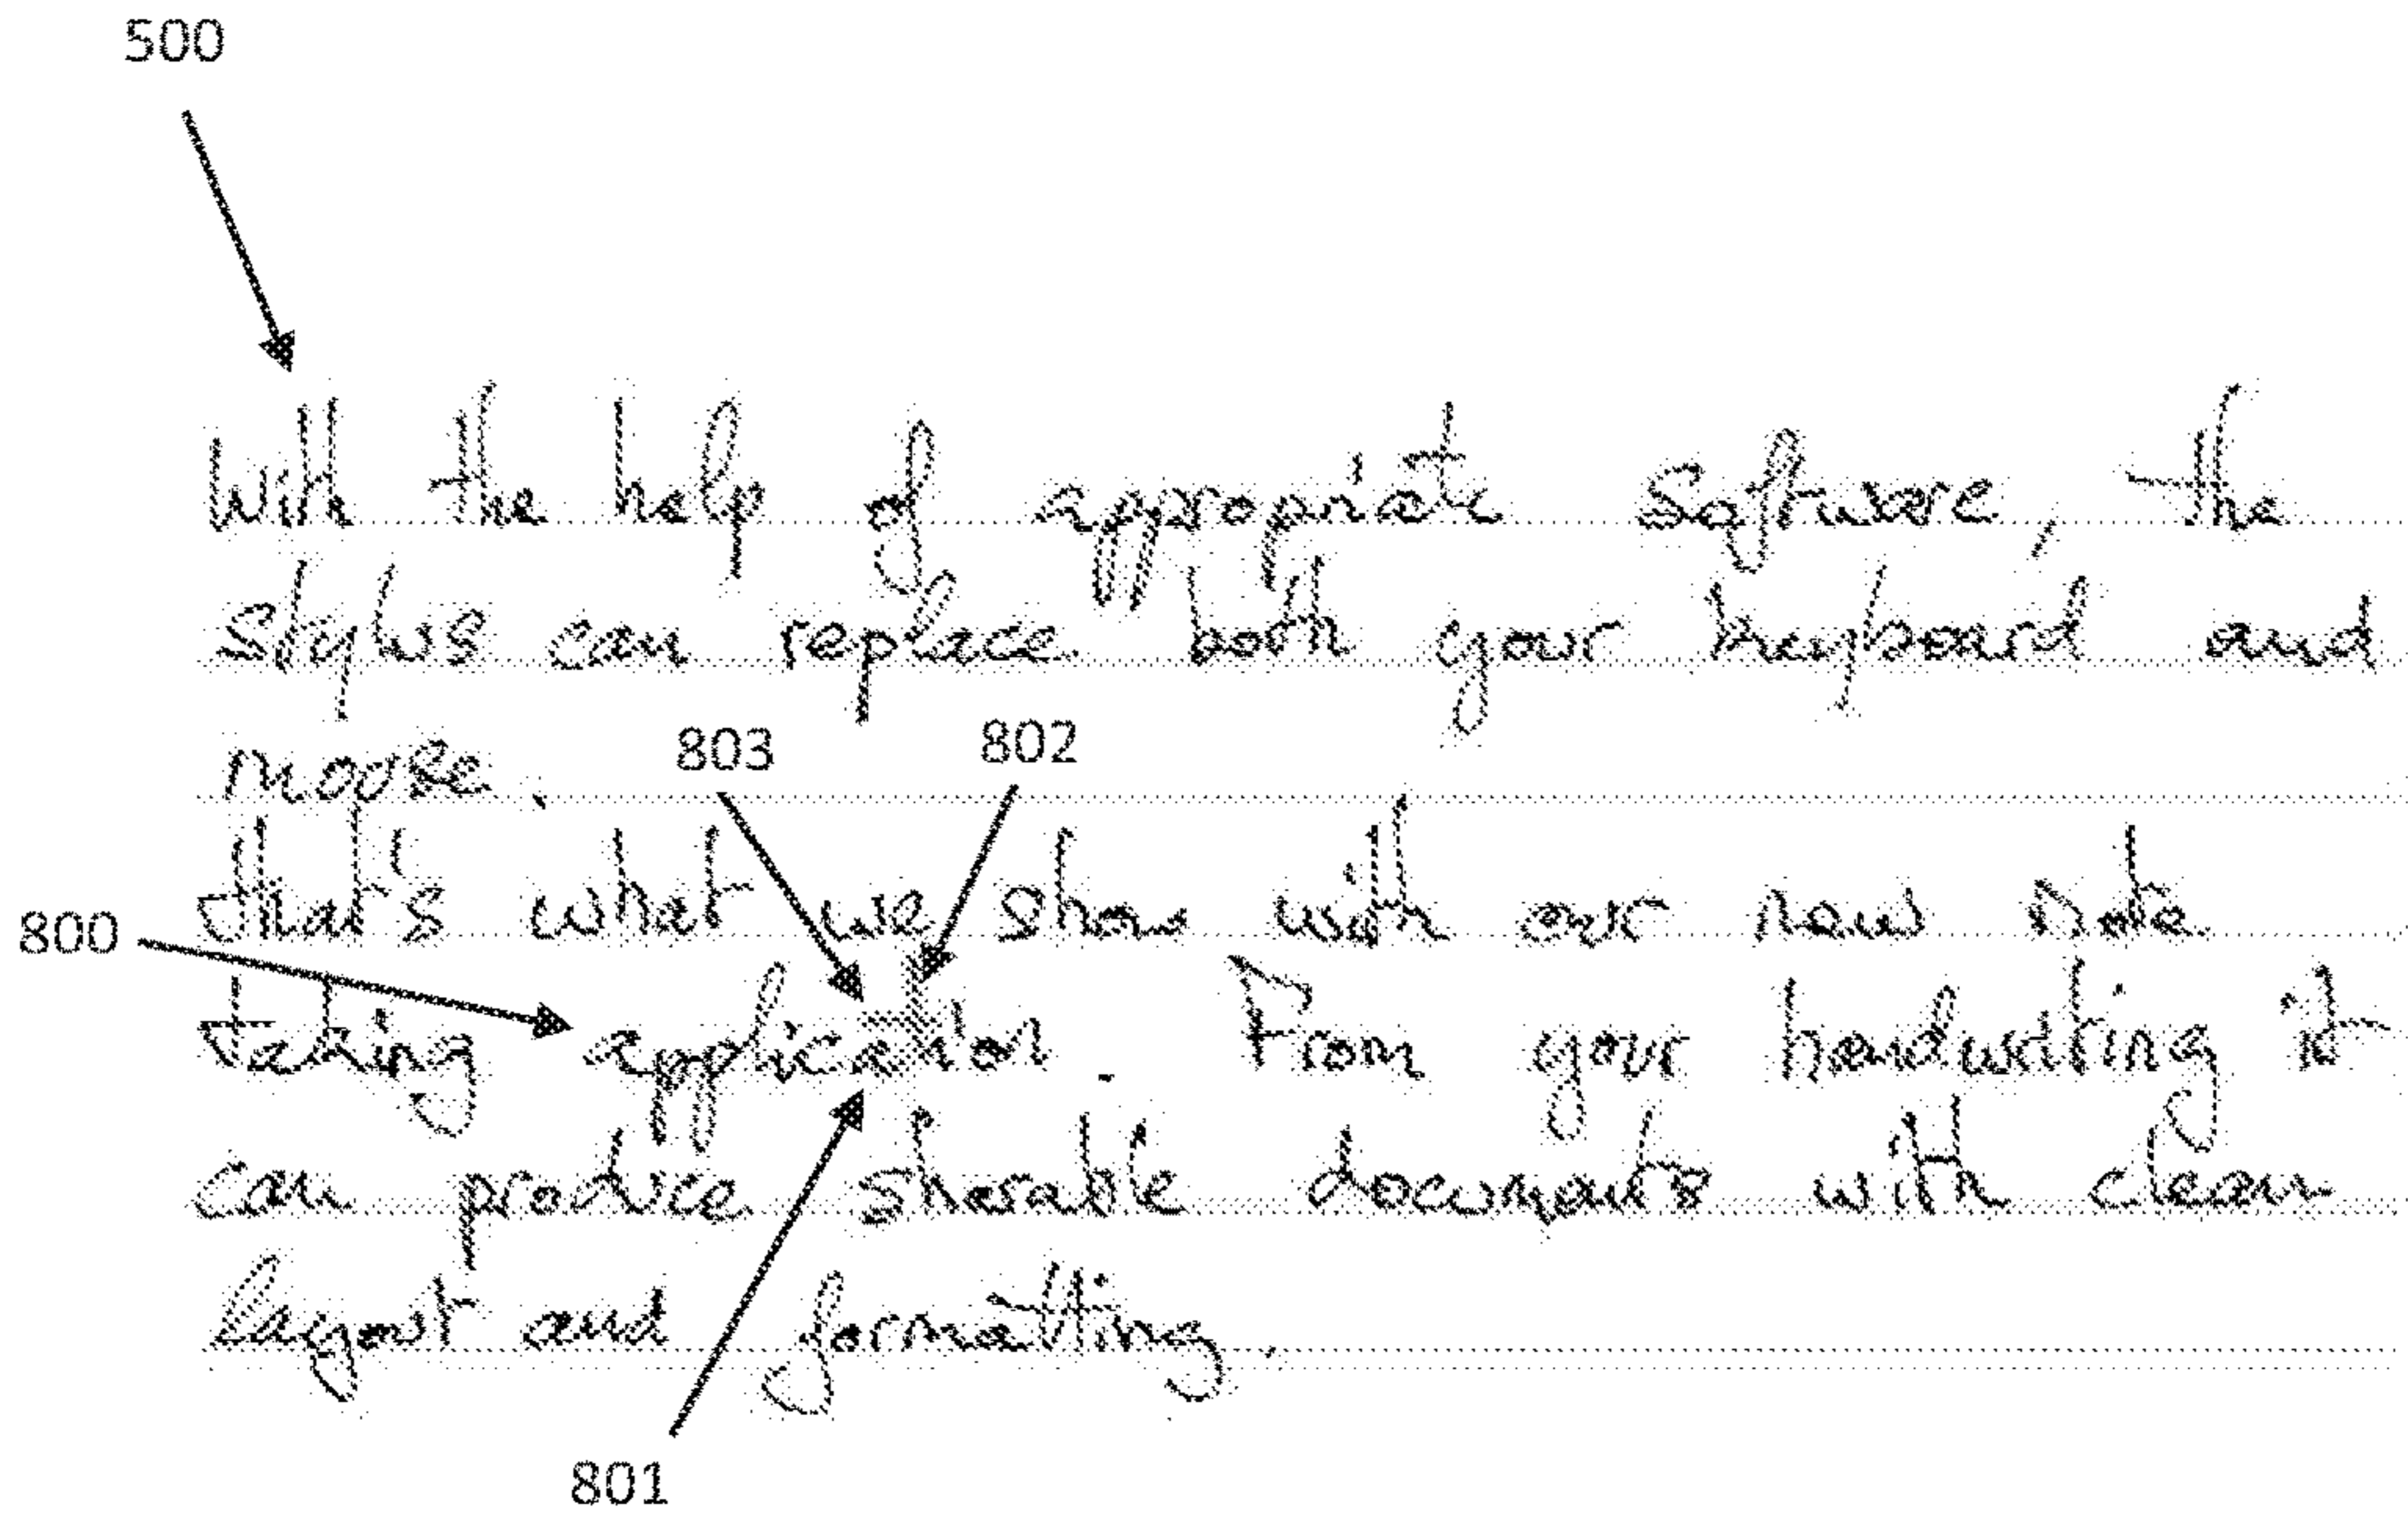 500
With the help of appropriate Software, the
stylus can replace both your keyboard and
mouse.
803 802
that's what we show with our new note
800
taking application. From your handwriting it
can produce sharable documents with clean
layout and formatting.
801